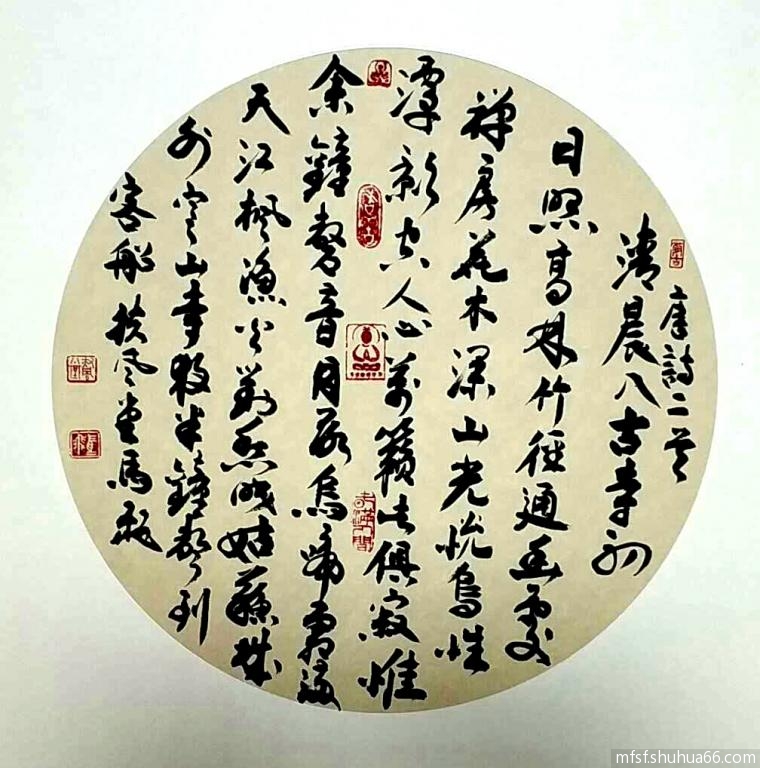 唐詩二首
清晨入古寺初
日照高林竹徑通幽處
禅房花木深山光悦鳥性
潭影空人心萬籟此俱寂惟
余鐘磬音月落烏啼霜滿
天江楓漁火對愁眠姑蘇城
外寒山寺夜半鐘聲到
客船扶风堂馬
mfsf.shuhua66.com